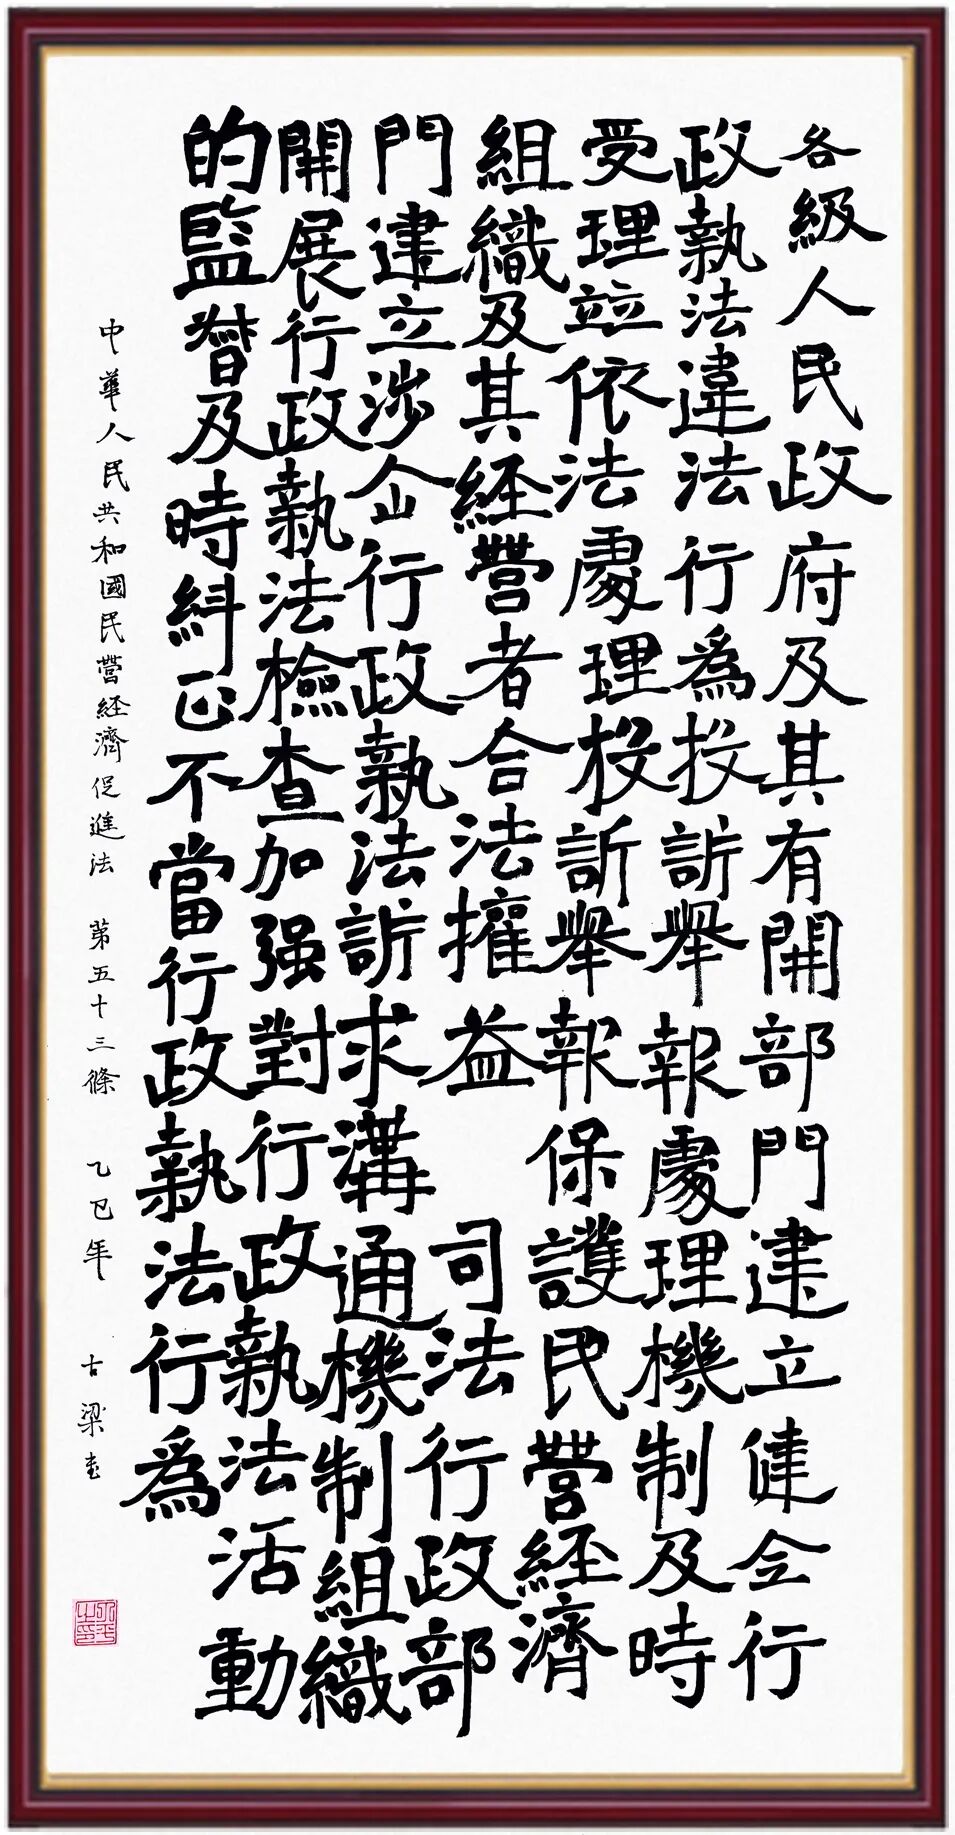 各級人民政府及其有開部門建立健全行
政執法違法行爲投訴舉報處理機制及時
受理並依法處理投訴舉報保護民營經濟
組織及其經營者合法權益 司法行政部
門建立涉企行政執法訴求溝通機制組織
開展行政執法檢查加强對行政執法活動
的監督及時糾正不當行政執法行爲
中華人民共和國民營經濟促進法 第五十三條 乙巳年 古梁書